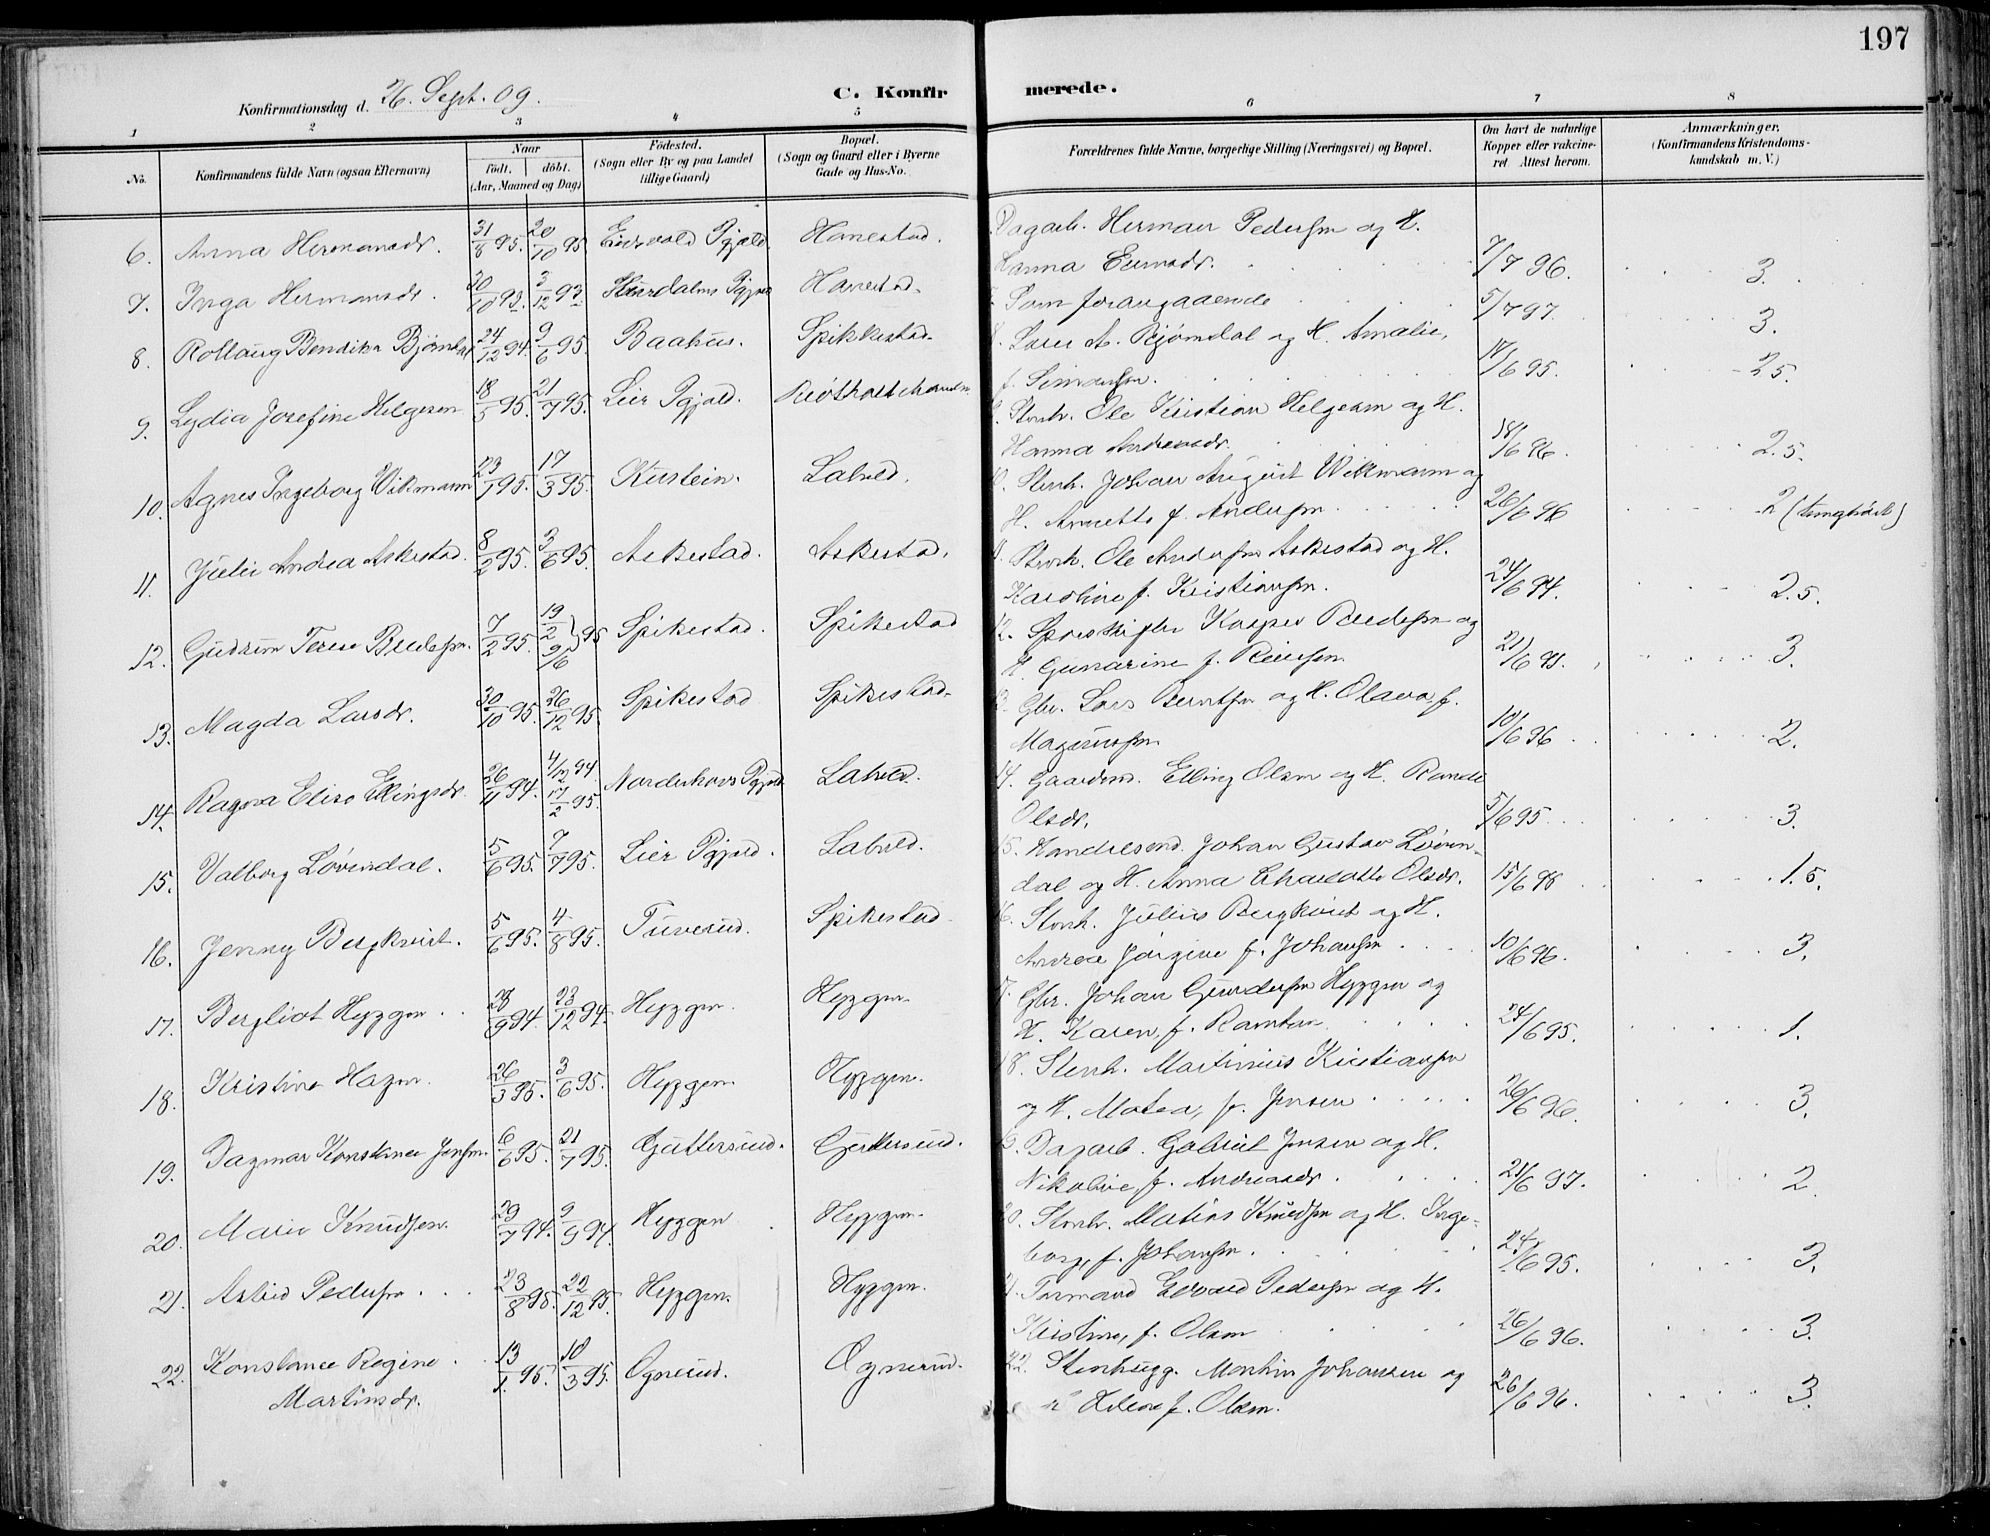 197
Konfirmationsdag d. 26. Sept. 09.
C. Konfirmerede.
1 2 3 4 5 6 7 8
No.
Konfirmandens fulde Navn (ogsaa Efternavn)
Naar
født. døbt.
(Aar, Maaned og Dag)
Fødested.
(Sogn eller By og paa Landet
tillige Gaard)
Bopæl.
(Sogn og Gaard eller i Byerne
Gade og Hus-No.
Forældrenes fulde Navne, borgerlige Stilling (Næringsvei) og Bopæl.
Om havt de naturlige
Kopper eller vakcine-
ret. Attest herom.
Anmærkninger.
(Konfirmandens Kristendoms-
kundskab m. V.)
6. Anna Hermansdr. 31/8 95. 20/10 95 Eidsvold Pgjæld. Hanestad. Dagarb. Herman Pedersen og H.
Hanna 7/7 96. 3.
7. Inga Hermansdr. 30/10 93. 3/12 93 Hurdalens Pgjæld Hanestad. Som foregaaende 5/7 97. 3.
8. Rollaug Bendika Bjørndal 24/12 94. 9/6 95. Baahus. Spikkestad. 8. Lars A. Bjørndal og H. Amalie,
f. Simensen. 17/6 95. 2.5.
9. Lydia Josefine Helgesen 18/5 95. 21/7 95. Lier Pgjæld. 9. Stenh. Ole Kristian Helgesen og H.
Hanna Andreasdr. 18/6 96. 2.5.
10. Agnes Ingeborg Wikmann 23/1 95. 17/3 95. Kustein. Labeld. 10. Stenh. Johan August Wikmann og
H. Annette f. Andersen. 26/6 96 2 (tunghørt)
11. Julie Andrea Askestad. 8/2 95. 3/6 95. Askestad. Askestad. 11. Stenh. Ole Andersen Askestad og H.
Karoline f. Kristiansen. 24/6 94. 2.5.
12. Gudrun Terese Bredesen. 7/2 95. 19/2 9/6 } 95 Spikestad. Spikestad 12. Sporskifter Kasper Bredesen og
H. Gunarine f. Reiersen 21/6 98. 3.
13. Magda Larsdr. 30/10 95. 26/12 95. Spikestad Spikestad. 13. Gbr. Lars Berntsen og H. Olava, f.
Magnussen 10/6 96 2.
14. Ragna Elise Ellingsdr. 26/11 94. 4/12 94 17/2 95. Norderhovs Pgjæld Labeld. 14. Gaardmd. Elling Olsen og H. Rande
Olsdr. 5/6 95. 3.
15. Valborg Løvendal. 5/6 95. 7/7 95. Lier Pgjæld. Labeld. 15. Handelsmd. Johan Gustav Løven-
dal og H. Anna Charlotte Olsdr. 15/6 98 1.5.
16. Jenny Bergkvist. 5/6 95. 4/8 95. Tuverud. Spikestad 16. Stenh. Julius Bergkvist og H.
Andrea Jørgine f. Johansen 10/6 96. 3.
17. Bergliot Hyggen 28/9 94. 23/12 94. Hyggen. Hyggen. 17. Gbr. Johan Gundersen Hyggen og
H. Karen, f. Ramton 24/6 95. 1.
18. Kristine Hagen. 26/3 95. 3/6 95. Hyggen. Hyggen. 18. Stenh. Martinius Kristiansen
og H. Matea, f. Jensen 26/6 96. 3.
19. Dagmar Konstance Jensen. 6/6 95. 21/7 95. Guttersrud. Guttersrud. 19. Dagarb. Gabriel Jensen og H.
Nikoline, f. Andreasdr. 21/6 97. 2.
20. Marie Knudsen. 29/7 94. 9/9 94. Hyggen Hyggen. 20. Stenh. Matias Knudsen og H. Inge-
borg, f. Johansen. 24/6 95. 3.
21. Astrid Pedersen. 23/8 95. 22/12 95. Hyggen. Hyggen. 21. Formand Edvard Pedersen og H.
Kristine, f. Olsen 26/6 96. 3.
22. Konstance Regine 13/1 95. 10/3 95. Ognerud. Ognerud. 22. Stenhugg. Martin Johansen og
Martinsdr. H. f. Olsen. 26/6 96. 3.